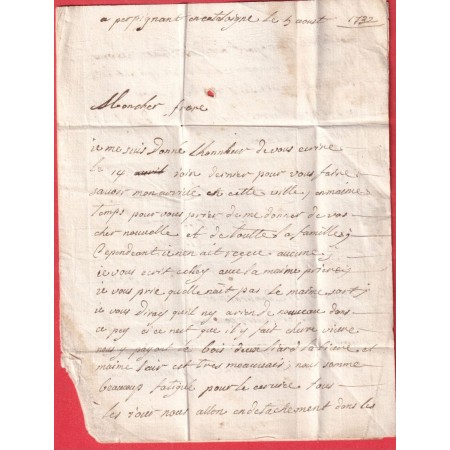 a perpignant en catalogne le 4 aoust 1732
Mon cher frere
je me suis donné lhonneur de vous ecrire
le 14 avril join dernier pour vous faire
savoir mon arrivée en cette ville, en maime
temps pour vous prier de me donner de vos
cher nouvelle et de toutte la famille j
Cependent je nen ait receu aucune j
je vous ecrit cellcy avec la maime priere
je vous prie quelle nait pas le maime sort j
je vous diray quil ny a rien de nouveau dans
ce pey si ce nest que il y fait chere vivre
nous y payont le bois deux liard la livre et
maime l'air est tres meauvais; nous somme
beaucoup fatigué pour le service tous
les jour nous allon en detachement dans les